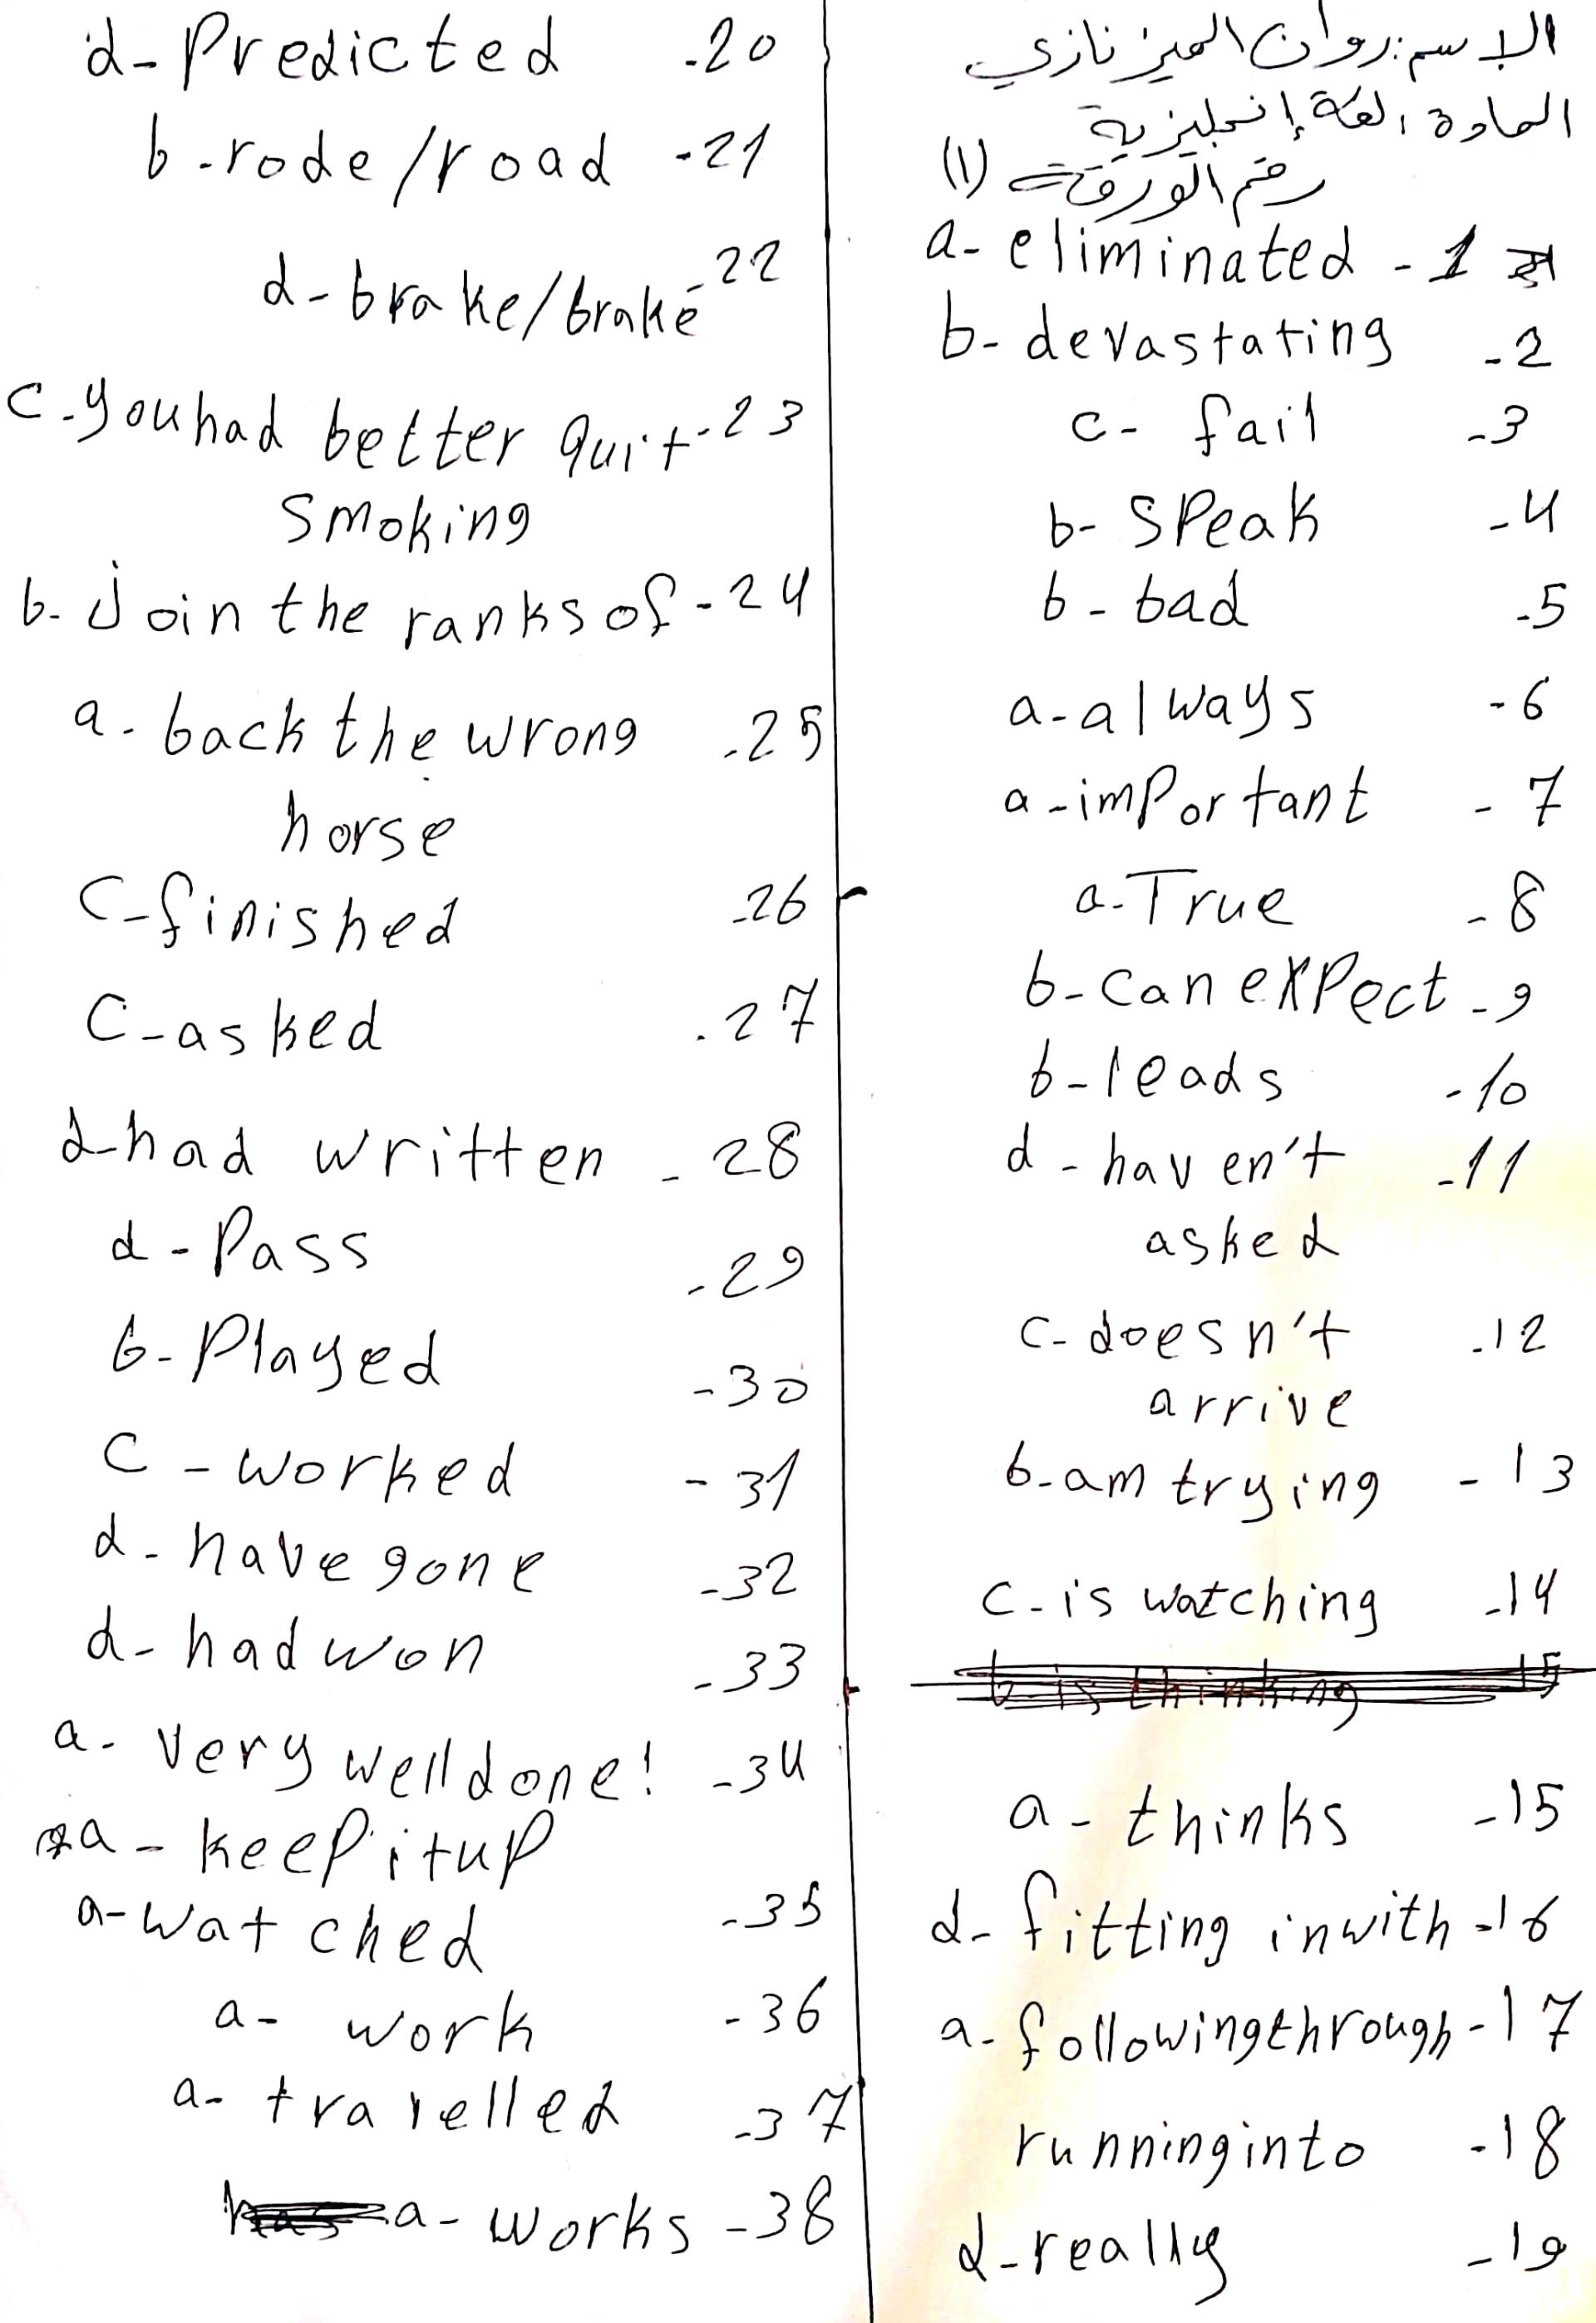 الاسم: روان الميز نازي
المادة: لغة إنجليزية
رقم الورقة = (1)
a- eliminated - 1
b- devastating -2
c- fail -3
b- speak -4
b- bad -5
a- always -6
a- important -7
a- True -8
b- can expect -9
b- leads -10
d- haven't -11
asked
c- doesn't -12
arrive
b- am trying -13
c- is watching -14
a- thinks -15
d- fitting in with -16
a- following through -17
running into -18
d- really -19
d- Predicted -20
b- rode/road -21
d- brake/brake -22
c- you had better quit -23
smoking
b- Join the ranks of -24
a- back the wrong -25
horse
c- finished -26
c- asked -27
d- had written -28
d- Pass -29
b- Played -30
c- worked -31
d- have gone -32
d- had won -33
a- very well done! -34
a- keep it up
a- watched -35
a- work -36
a- travelled -37
a- works -38